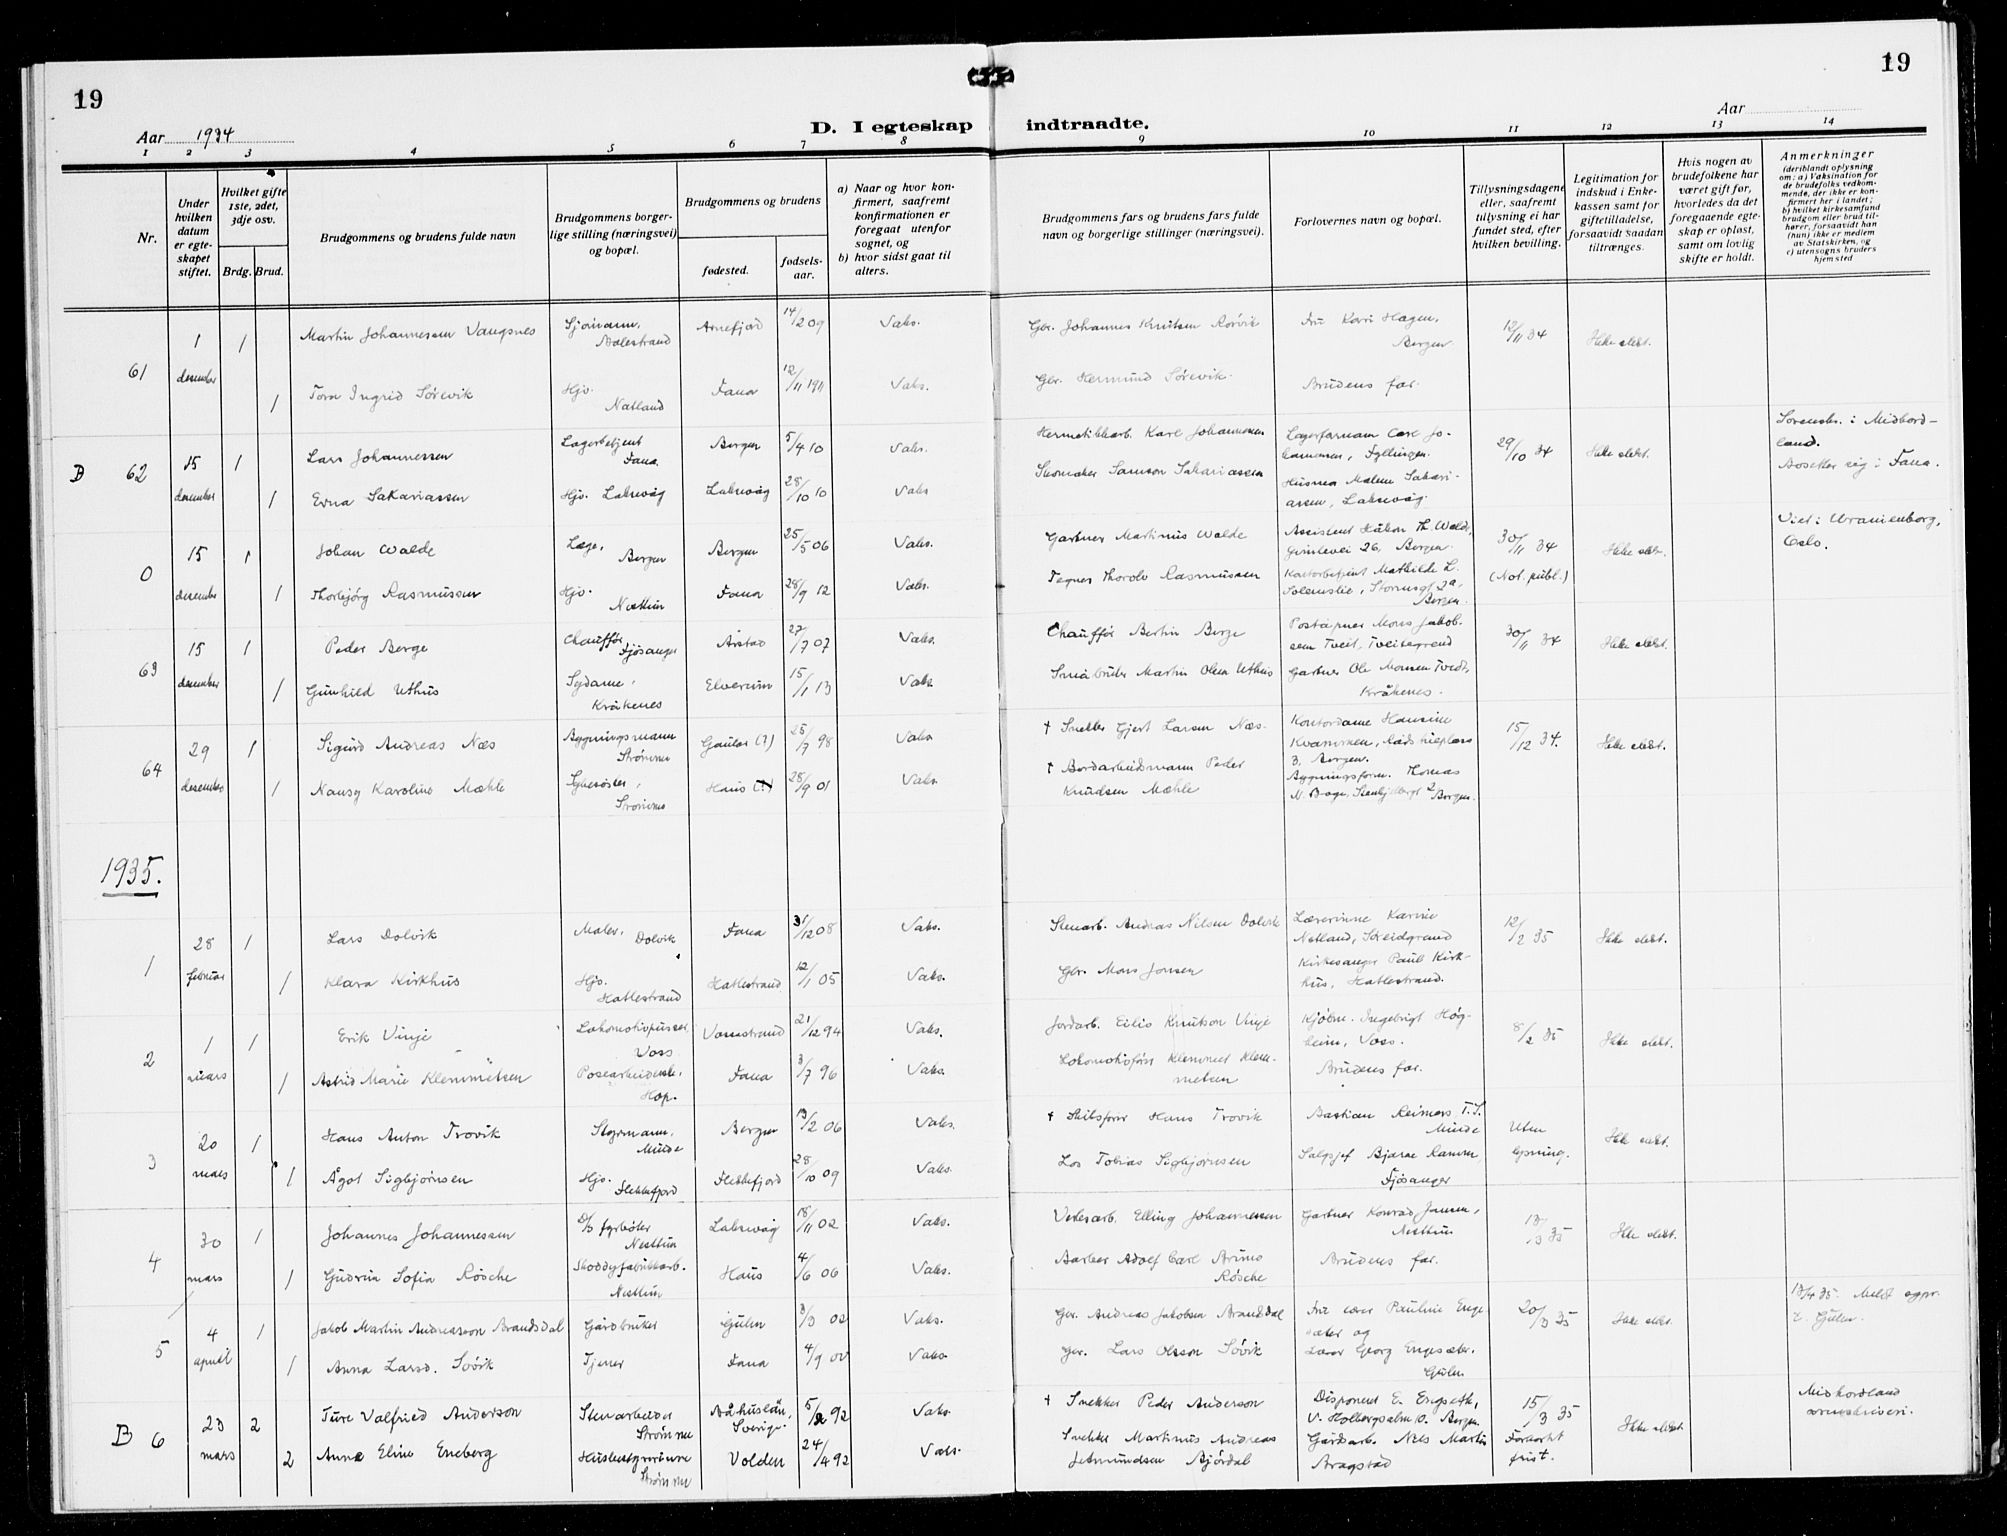 19
19
Aar 1934
D. I egteskap indtraadte.
Aar
1 2 3 4 5 6 7 8 9 10 11 12 13 14
Nr.
Under hvilken datum er egteskapet stiftet.
Hvilket gifte 1ste, 2det, 3dje osv.
Brdg. Brud.
Brudgommens og brudens fulde navn
Brudgommens borgerlige stilling (næringsvei) og bopæl.
Brudgommens og brudens
fødested.
fødselsaar.
a) Naar og hvor konfirmert, saafremt konfirmationen er foregaat utenfor sognet, og
b) hvor sidst gaat til alters.
Brudgommens fars og brudens fars fulde navn og borgerlige stillinger (næringsvei).
Forlovernes navn og bopæl.
Tillysningsdagene eller, saafremt tillysning ei har fundet sted, efter hvilken bevilling.
Legitimation for indskud i Enkekassen samt for giftetilladelse, forsaavidt saadan tiltrænges.
Hvis nogen av brudefolkene har været gift før, hvorledes da det foregaaende egteskap er opløst, samt om lovlig skifte er holdt.
Anmerkninger (deriblandt oplysning om: a) Vaksination for de brudefolks vedkommende, der ikke er konfirmert her i landet; b) hvilket kirkesamfund brudgom eller brud tilhører, forsaavidt han (hun) ikke er medlem av Statskirken, og c) utensogns bruders hjemsted
61 1 desember 1 Martin Johannessen Vangsnes Sjømann, Balestrand Arnefjord 14/2 09 Vaks. Gbr. Johannes Knutsen Rørvik Fru Kari Hagen, Bergen 12/11 34 Ikke slekt.
1 Tora Ingrid Sørevik Hjv. Natland Fana 12/11 1911 Vaks. Gbr. Hermund Sørevik. Brudens far.
B 62 15 desember 1 Lars Johannessen Lagerbetjent Fana Bergen 5/4 10 Vaks. Hermetikkarb. Karl Johannessen Lagerformann Carl Johannessen, Fyllingen. 29/10 34 Ikke slekt. Sorenskr. i Midhordland. Bosetter sig i Fana.
1 Erna Sakariassen Hjv. Laksevåg Laksevåg 28/10 10 Vaks Skomaker Samson Sakariassen Husmor Malene Sakariassen, Laksevåg.
0 15 desember 1 Johan Walde Læge, Bergen Bergen 25/5 06 Vaks. Gartner Martinus Walde Assistent Håkon Th. Walde, 26, Bergen. 30/11 34 (Not. publ.) Ikke slekt. Viet i Uranienborg, Oslo.
1 Thorbjørg Rasmussen Hjv. Nesttun Fana 28/9 12 Vaks. Tegner Thorolv Rasmussen Kontorbetjent Mathilde L. Solemslie, Stormsgt 2a, Bergen.
63 15 desember 1 Peder Berge Chauffør, Fjøsanger Årstad 27/7 07 Vaks. Chauffør Bertin Berge Poståpner Mons Jakobsen Tveit, Tveitegrend 30/11 34 Ikke slekt.
1 Gunhild Uthus Sydame, Kråkenes Elverum 15/1 13 Vaks. Småbruker Martin Olsen Uthus Gartner Ole Monsen Tvedt, Kråkenes.
64 29 desember 1 Sigurd Andreas Næs Bygningsmann Strømme Gaular (?) 25/7 98 Vaks. † Snekker Gjert Larsen Næs. Kontordame Hansine Kvammen, Rådstueplass 3, Bergen. 15/12 34. Ikke slekt.
1 Nansy Karoline Mæhle Syerske, Strømme Haus 28/9 01 Vaks. † Bordarbeidsmann Peder Knudsen Mæhle Bygningsform. Thomas N. Boge, Stenkjellergt 2, Bergen.
1935.
1 28 februar 1 Lars Dolvik Maler, Dolvik Fana 31/12 08 Vaks. Stenarb. Andreas Nilsen Dolvik Lærerinne Karine Natland, Skeidgrend 12/2 35 Ikke slekt.
1 Klara Kirkhus Hjv. Hatlestrand Hatlestrand 12/1 05 Vaks. Gbr. Mons Jonsen Kirkesanger Paul Kirkhus, Hatlestrand.
2 1 mars 1 Erik Vinje Lokomotivpusser Voss Vossestrand 21/12 94 Vaks. Jordarb. Eilif Knutson Vinje Kjøbm. Ingebrigt Høgheim, Voss. 8/2 35 Ikke slekt.
1 Astrid Marie Klemmetsen Posearbeiderske, Hop. Fana 3/7 96 Vaks. Lokomotivfører Klemmet Klemmetsen Brudens far.
3 20 mars 1 Hans Anton Trovik Styrmann, Minde Bergen 13/2 06 Vaks. † Skibsfører Hans Trovik Bastian Reimers, Minde Uten lysning. Ikke slekt.
1 Ågot Sigbjørnsen Hjv. Flekkefjord Flekkefjord 28/10 09 Vaks. Los Tobias Sigbjørnsen Salgsjef Bjarne Ramm, Fjøsanger
4 30 mars 1 Johannes Johannessen D/S fyrbøter Nesttun Laksevåg 18/11 02 Vaks. Verksarb. Elling Johannessen Gartner Konrad Jensen, Nesttun 13/3 35 Ikke slekt.
1 Gudrun Sofia Røsche Shoddyfabrikkarb. Nesttun Haus 4/6 06 Vaks. Barber Adolf Carl Bruno Røsche Brudens far.
5 4 april 1 Jakob Martin Andreasson Brandsdal Gårdbruker Gulen 3/3 02 Vaks. Gbr. Andreas Jakobsen Brandsdal Fru lærer Pauline Engesæter og 20/3 35 Ikke slekt. 13/4 35. Meldt sgpr. t. Gulen.
1 Anna Larsd. Søvik Tjener Fana 4/9 Vaks. Gbr. Lars Olsson Søvik Lærer Georg Engesæter, Gulen
B 6 23 mars 2 Ture Valfried Anderson Stenarbeider Strømme Båhuslän, Sverige 5/2 92 Vaks. † Snekker Peder Anderson Disponent E. Engseth, V. Holbergsalm. 10. Bergen. 15/3 35 Forkortet frist. Ikke slekt Midhordland sorenskriveri.
2 Anna Eline Eneberg Husbestyrerinne Strømme Volden 24/4 92 Vaks. Snekker Martinus Andreas Jetmundsen Bjørdal Gårdarb. Nels Martin Aragstad